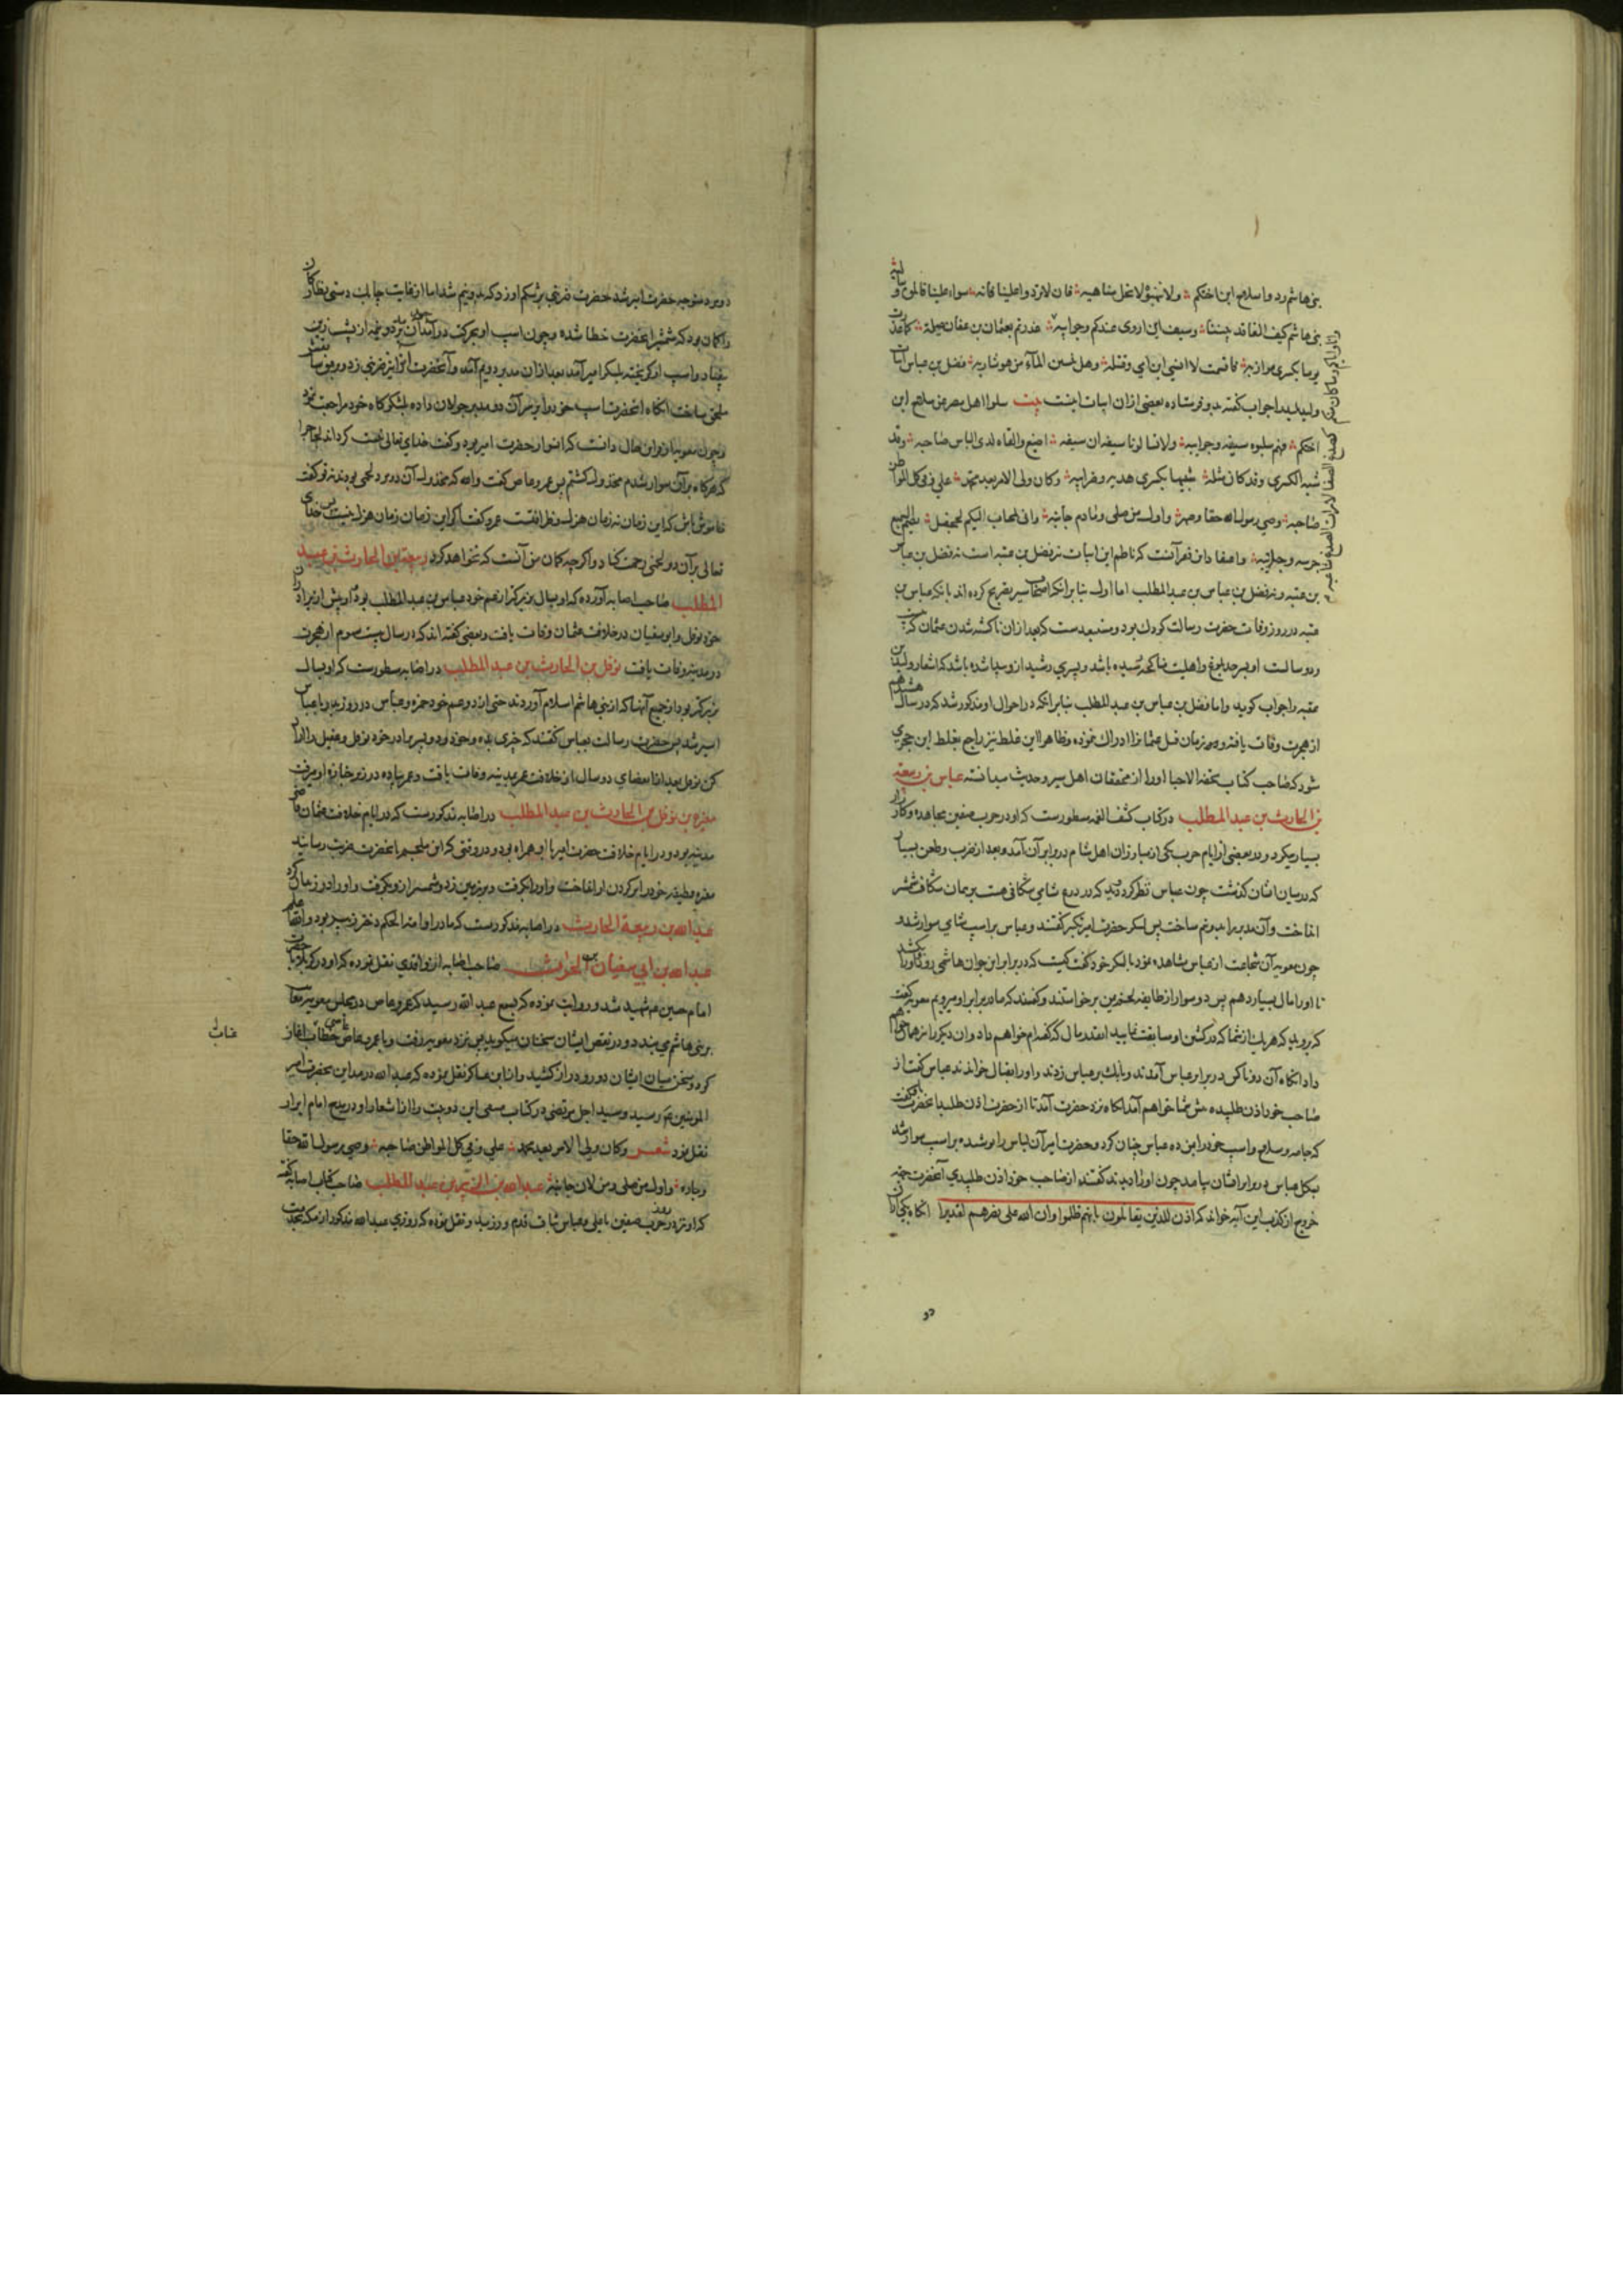 بنی هاشم ردوا سلاح ابن اختکم ولا تنهبوه لا تحل مناهبه فان لا تردوا علینا فانه سواء علینا قاتلوه و سالبه
بنی هاشم کیف التعاقد بیننا وسیف ابن اروی عندکم وجرایبه غدرتم بعثمان بن عفان ضلة کما غدرت
یوما بکسری مرازبه فاقسمت لا انسی ابن امی وقتله وهل نسین الماء من هو شاربه فضل بن عباس ابیات
ولید را جواب گفته بدو فرستاده بعضی از ان ابیات اینست بیت سلوا اهل مصر عن سلاح ابن
اختکم فهم سلبوه سیفه وجرایبه ولا تسالونا سیفه ان سیفه اضیع والقاه لدی الباس صاحبه وقد
شبه الکسری وقد کان مثله شبیها بکسری هدیه وضرایبه وکان ولی الامر بعد محمد علی وفی کل المواطن
صاحبه وصی رسول الله حقا وصهره واول من صلی ومادم جانبه وانی لمجتاب الیکم بجحفل یصم السمیع
جرسه وجلایبه واصفا دان فقر آنست که ناظم این ابیات نه فضل بن عتبه است نه فضل بن عباس
بن عتبه ونه فضل بن عباس بن عبد المطلب اما اول بنابر انکه اصحاب سیر تصریح کرده اند بانکه عباس بن
عتبه در روز وفات حضرت رسالت کودک بود و مستبعد ست که بعد از ان تا کشته شدن عثمان که بیست
ودو سالست او بسر حد بلوغ واهلیت مناکحه رسیده باشد وپسری رشید ازو پیدا شده باشد که اشعار ولید بن
عقبه را جواب گوید واما فضل بن عباس بن عبد المطلب بنابر انکه در احوال او مذکور شد که در سال هشتدهم
از هجرت وفات یافته وهو زمان قتل عثمانرا ادراک نموده وظاهرا این غلط نیز راجع بغلط ابن حجری
شود که صاحب کتاب تحفة الاحبا اورا از محققان اهل سیر وحدیث میدانسته عباس بن ربیعه
بن الحارث بن عبد المطلب در کتاب کشف الغمه مسطورست که او در حرب صفین مجاهده وکارزار
بسیار میکرد ودر بعضی از ایام حرب یکی از مبارزان اهل شام در برابر آن آمد وبعد از ضرب وطعن بسیار
که در میان ایشان گذشت چون عباس نظر کرد دید که در درع شامی شکافی هست بر همان شکاف شمشیر
انداخت وآن مدبر را بدو نیم ساخت پس لشکر حضرت امیر تکبیر گفتند و عباس بر اسب شامی سوار شد و
چون معویه آن شجاعت از عباس مشاهده نمود با لشکر خود گفت کیست که در برابر این جوان هاشمی رود واورا بکشد
تا اورا مال بسیار دهم پس دو سوار از طایفه لخمیین برخواستند وگفتند که ما در برابر او میرویم معویه گفت
که بروید که هر یک از شما که در کشتن او سابقت نمایید انقدر مال که گفته ام خواهم داد وان دیگر را نیز همان خواهم
داد انگاه آن دو ناکس در برابر عباس آمدند و بانگ بر عباس زدند واورا بقتال خواندند عباس گفت از
صاحب خود اذن طلبیده پیش شما خواهم آمد انگاه نزد حضرت آمد تا از حضرت اذن طلبد انحضرت باو گفت
که جامه وسلاح واسب خود را بمن ده عباس چنان کرد وحضرت امیر آن لباس را پوشیده بر اسب سوار شد
بشکل عباس در برابر ایشان بیامد چون اورا دیدند گفتند از صاحب خود اذن طلبیدی آنحضرت جهة
خروج از کذب این آیه خواند که اذن للذین یقاتلون بانهم ظلموا وان الله علی نصرهم لقدیر انگاه یکی از ان
دو
دو برد متوجه حضرت امیر شد حضرت ضربتی بر شکم او زد که بدو نیم شد اما از غایت چالک دستی نظارکان
را گمان بود که شمشیر انحضرت خطا شده وچون اسب او بحرکت در آمد آن دو نیمه از پشت زین
بیفتاد واسب او گریخته بلشکر امیر آمد بعد از ان مدبر دویم آمد وآنحضرت انرا نیز ضربتی زد وبرفیق سابقش
ملحق ساخت انگاه انحضرت اسب خود را بر سر آن دو مدبر جولان داده بلشکرگاه خود مراجعت نمود
وچون معویه از وان حال دانست که ان سوار حضرت امیر بود وگفت خدای تعالی زشت گرداند لجاج را
که هر گاه بران سوار شدم مخذول گشتم پس عمرو عاص گفت والله که مخذول آن دو مرد لخمی بودند نه تو گفت
خاموش باش که این زمان نه زمان هزل وظرافتست عمرو گفت اگر این زمان زمان هزل نیست پس خدای
تعالی بر آن دو لخمی رحمت کناد واگر چه گمان من آنست که نخواهد کرد ربیعة بن الحارث بن عبد
المطلب صاحب اصابه آورده که او بسال بزرگتر از عم خود عباس بن عبد المطلب بود واو پیش از برادران
خود نوفل وابو سفیان در خلافت عثمان وفات یافت وبعضی گفته اند که در سال بیست وسوم از هجرت
در مدینه وفات یافت نوفل بن الحارث بن عبد المطلب در اصابه مسطورست که او بسال
بزرگتر بود از جمیع آنها که از بنی هاشم اسلام آوردند حتی از دو عم خود حمزه وعباس در روز بدر با عباس
اسیر شد پس حضرت رسالت بعباس گفتند که خری بده وخود ودو پسر برادر خود نوفل وعقیل را ازاد
کن نوفل بعد از انقضای دو سال از خلافت عمر بمدینه وفات یافت وعمر پیاده در زیر جنازه او میرفت
مغیرة بن نوفل بن الحارث بن عبد المطلب در اصابه مذکورست که در ایام خلافت عثمان قاضی
مدینه بود ودر ایام خلافت حضرت امیر با او همراه بود ودر وقتی که ابن ملجم بانحضرت ضربت رسانید
مغیره قطیفه خود را بر گردن او انداخت واورا بگرفت وبر زمین زد وشمشیر ازو بگرفت واورا در زندان کرد
عبد الله بن ربیعة الحارث در اصابه مذکورست که مادر او ام الحکم دختر زبیر بود والله اعلم
عبد الله بن ابی سفیان بن الحارث صاحب اصابه از واقدی نقل نموده که او در کربلا با حضرت
امام حسین عم شهید شد وروایت نموده که بسمع عبد الله رسید که عمرو عاص در مجلس معویه
بر بنی هاشم می بندد ودر نقص ایشان سخنان میگوید پس نزد معویه رفت وبا عمرو عاص خطاب اغاز
عتاب
کرد وسخن میان ایشان دور ودراز کشید وابن عساکر نقل نموده که عبد الله در مداین بحضرت امیر
المومنین عم رسید وسید اجل مرتضی در کتاب این دو بیت را از اشعار او در مدح امام ابرار
نقل نمود شعر وکان ولی الامر بعد محمد علی وفی کل المواطن صاحبه وصی رسول الله حقا
وجاره واول من صلی ومن لان جانبه عبد الله بن الزبیر بن عبد المطلب صاحب کتاب اصابه گفته
که او نیز در حرب صفین با علی وعباس ثابت قدم ورزید ونقل نموده که روزی عبد الله مذکور از مکه بخدمت